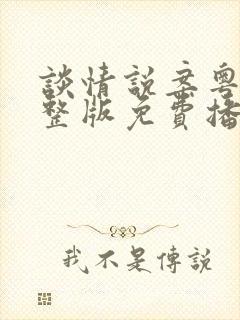 談情說案粵
整版免費播
我不是傳說